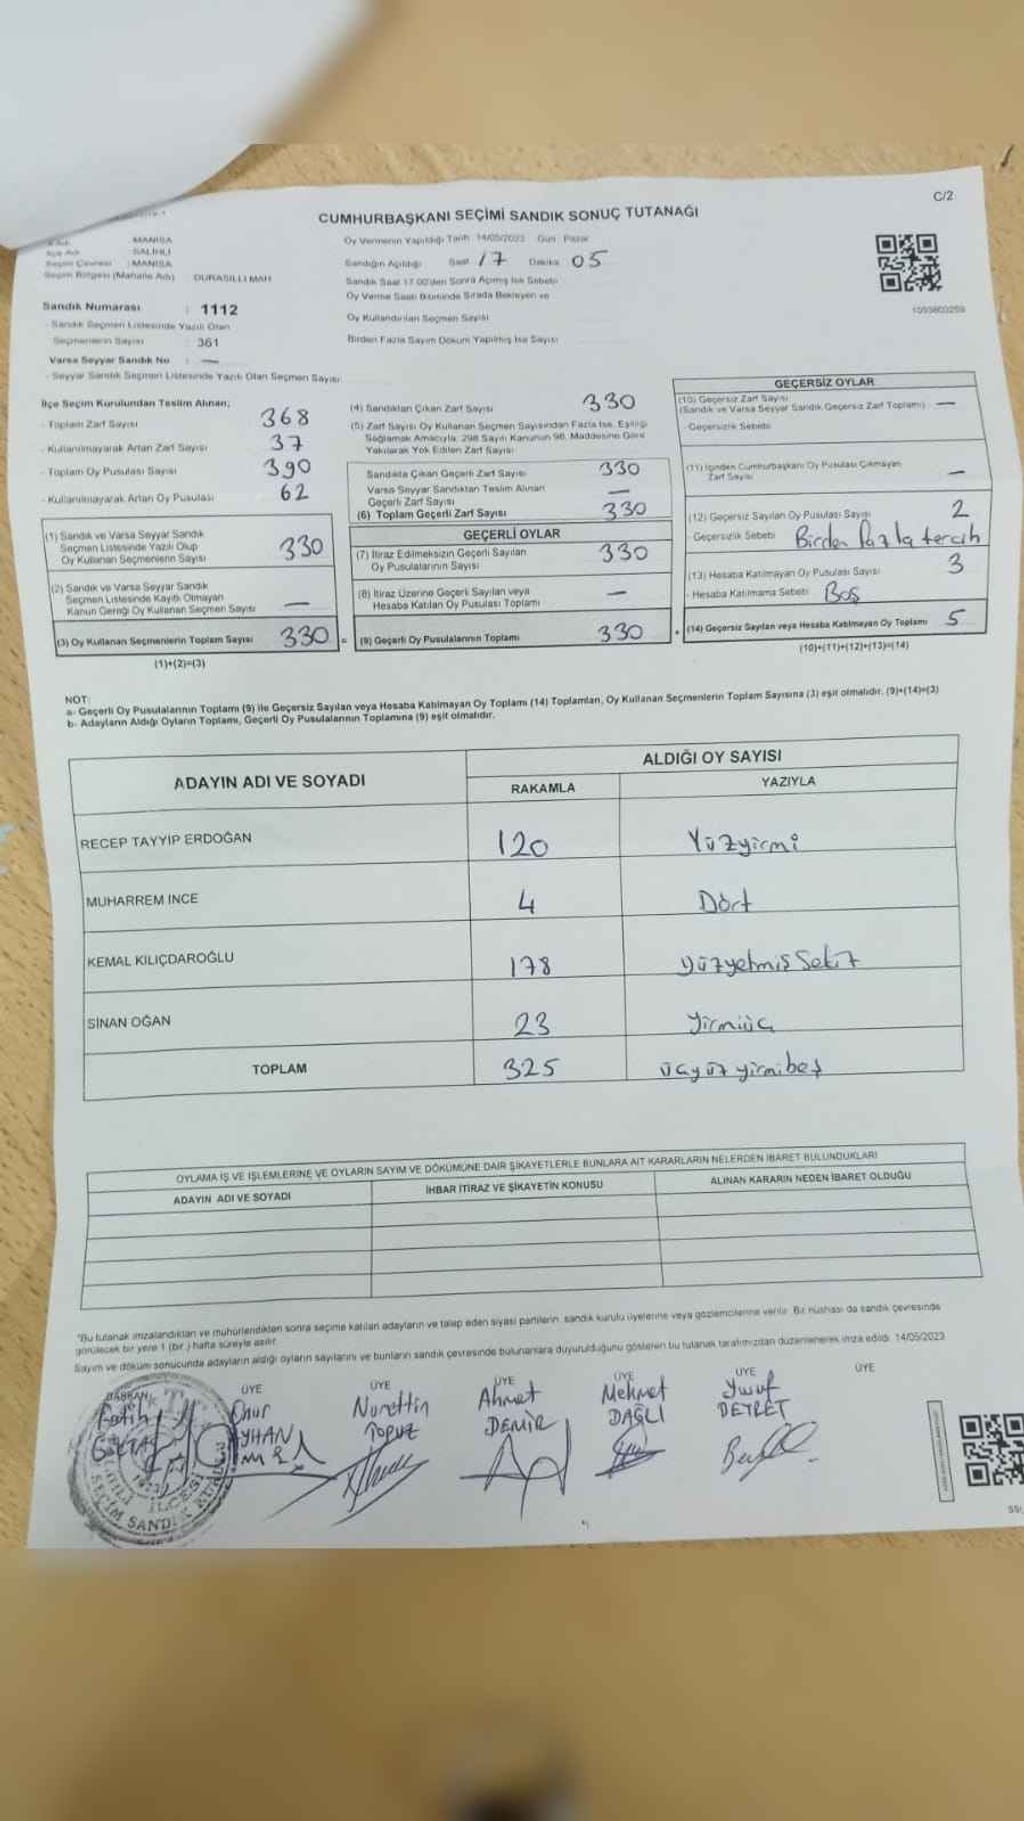 C/2
CUMHURBAŞKANI SEÇİMİ SANDIK SONUÇ TUTANAĞI
: MANİSA
: SALİHLİ
: MANİSA
Seçim Bölgesi (Mahalle Adı) DURASILLI MAH
Sandık Numarası : 1112
- Sandık Seçmen Listesinde Yazılı Olan
Seçmenlerin Sayısı : 361
Varsa Seyyar Sandık No : —
- Seyyar Sandık Seçmen Listesinde Yazılı Olan Seçmen Sayısı
Oy Vermenin Yapıldığı Tarih 14/05/2023 Gün Pazar
Sandığın Açıldığı Saat 17 Dakika 05
Sandık Saat 17.00'den Sonra Açılmış İse Sebebi
Oy Verme Saati Bitiminde Sırada Bekleyen ve
Oy Kullandırılan Seçmen Sayısı
Birden Fazla Sayım Döküm Yapılmış İse Sayısı
1093800259
İlçe Seçim Kurulundan Teslim Alınan;
- Toplam Zarf Sayısı 368
- Kullanılmayarak Artan Zarf Sayısı 37
- Toplam Oy Pusulası Sayısı 390
- Kullanılmayarak Artan Oy Pusulası 62
(1) Sandık ve Varsa Seyyar Sandık
Seçmen Listesinde Yazılı Olup
Oy Kullanan Seçmenlerin Sayısı 330
(2) Sandık ve Varsa Seyyar Sandık
Seçmen Listesinde Kayıtlı Olmayan
Kanun Gereği Oy Kullanan Seçmen Sayısı —
(3) Oy Kullanan Seçmenlerin Toplam Sayısı 330 =
(1)+(2)=(3)
(4) Sandıktan Çıkan Zarf Sayısı 330
(5) Zarf Sayısı Oy Kullanan Seçmen Sayısından Fazla İse, Eşitliği
Sağlamak Amacıyla, 298 Sayılı Kanunun 98. Maddesine Göre
Yakılarak Yok Edilen Zarf Sayısı
Sandıkta Çıkan Geçerli Zarf Sayısı 330
Varsa Seyyar Sandıktan Teslim Alınan
Geçerli Zarf Sayısı —
(6) Toplam Geçerli Zarf Sayısı 330
GEÇERLİ OYLAR
(7) İtiraz Edilmeksizin Geçerli Sayılan
Oy Pusulalarının Sayısı 330
(8) İtiraz Üzerine Geçerli Sayılan veya
Hesaba Katılan Oy Pusulası Toplamı —
(9) Geçerli Oy Pusulalarının Toplamı 330 +
GEÇERSİZ OYLAR
(10) Geçersiz Zarf Sayısı
(Sandık ve Varsa Seyyar Sandık Geçersiz Zarf Toplamı) —
- Geçersizlik Sebebi
(11) İçinden Cumhurbaşkanı Oy Pusulası Çıkmayan
Zarf Sayısı —
(12) Geçersiz Sayılan Oy Pusulası Sayısı 2
- Geçersizlik Sebebi Birden fazla tercih
(13) Hesaba Katılmayan Oy Pusulası Sayısı 3
- Hesaba Katılmama Sebebi Boş
(14) Geçersiz Sayılan veya Hesaba Katılmayan Oy Toplamı 5
(10)+(11)+(12)+(13)=(14)
NOT:
a- Geçerli Oy Pusulalarının Toplamı (9) ile Geçersiz Sayılan veya Hesaba Katılmayan Oy Toplamı (14) Toplamları, Oy Kullanan Seçmenlerin Toplam Sayısına (3) eşit olmalıdır. (9)+(14)=(3)
b- Adayların Aldığı Oyların Toplamı, Geçerli Oy Pusulalarının Toplamına (9) eşit olmalıdır.
ADAYIN ADI VE SOYADI ALDIĞI OY SAYISI
RAKAMLA YAZIYLA
RECEP TAYYİP ERDOĞAN 120 Yüzyirmi
MUHARREM İNCE 4 Dört
KEMAL KILIÇDAROĞLU 178 yüzyetmiş Sekiz
SİNAN OĞAN 23 Yirmiüç
TOPLAM 325 üçyüz yirmibeş
OYLAMA İŞ VE İŞLEMLERİNE VE OYLARIN SAYIM VE DÖKÜMÜNE DAİR ŞİKAYETLERLE BUNLARA AİT KARARLARIN NELERDEN İBARET BULUNDUKLARI
ADAYIN ADI VE SOYADI İHBAR İTİRAZ VE ŞİKAYETİN KONUSU ALINAN KARARIN NEDEN İBARET OLDUĞU
"Bu tutanak imzalandıktan ve mühürlendikten sonra seçime katılan adayların ve talep eden siyasi partilerin, sandık kurulu üyelerine veya gözlemcilerine verilir. Bir nüshası da sandık çevresinde
görülecek bir yere 1 (bir) hafta süreyle asılır.
Sayım ve döküm sonucunda adayların aldığı oyların sayılarını ve bunların sandık çevresinde bulunanlara duyurulduğunu gösteren bu tutanak tarafımızdan düzenlenerek imza edildi. 14/05/2023
BAŞKAN ÜYE ÜYE ÜYE ÜYE ÜYE ÜYE
Fatih Onur Nurettin Ahmet Mehmet Yusuf
AYHAN TOPUZ DEMİR DAĞLI
İLÇESİ
SEÇİM SANDIK